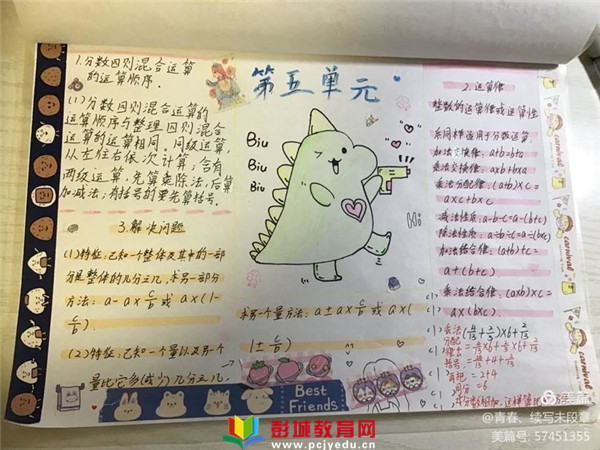 第五单元
1.分数四则混合运算
的运算顺序.
(1)分数四则混合运算的
运算顺序与整理四则混合
运算的运算相同.同级运算,
从左往右依次计算;含有
两级运算,先算乘除法,后算
加减法;有括号的要先算括号.
Biu
Biu
Biu
Hi
2.运算律
整数的运算律或运算性
乘法交换律:axb=bxa
乘法分配律:(a+b)×c=
axc+bxc
减法性质:a-b-c=a-(b+c)
加法结合律:(a+b)+c=
a+(b+c)
乘法结合律:(axb)xc=
ax(bxc)
3.解决问题
(1)特征:已知一个整体及其中的一部
分是整体的几分之几,求另一部分
方法:a-a×c/b或a×(1-
c/b)
(2)特征:已知一个量以及另一个
量比它多(或少)几分之几,
求另个量方法:a±a×c/b或a×(
1±c/b)
=2+4
=6
Best
Friends
carnival
carnival
彭城教育网
www.pcjyedu.cn
美篇
@青春、续写未段章
美篇号:57451355